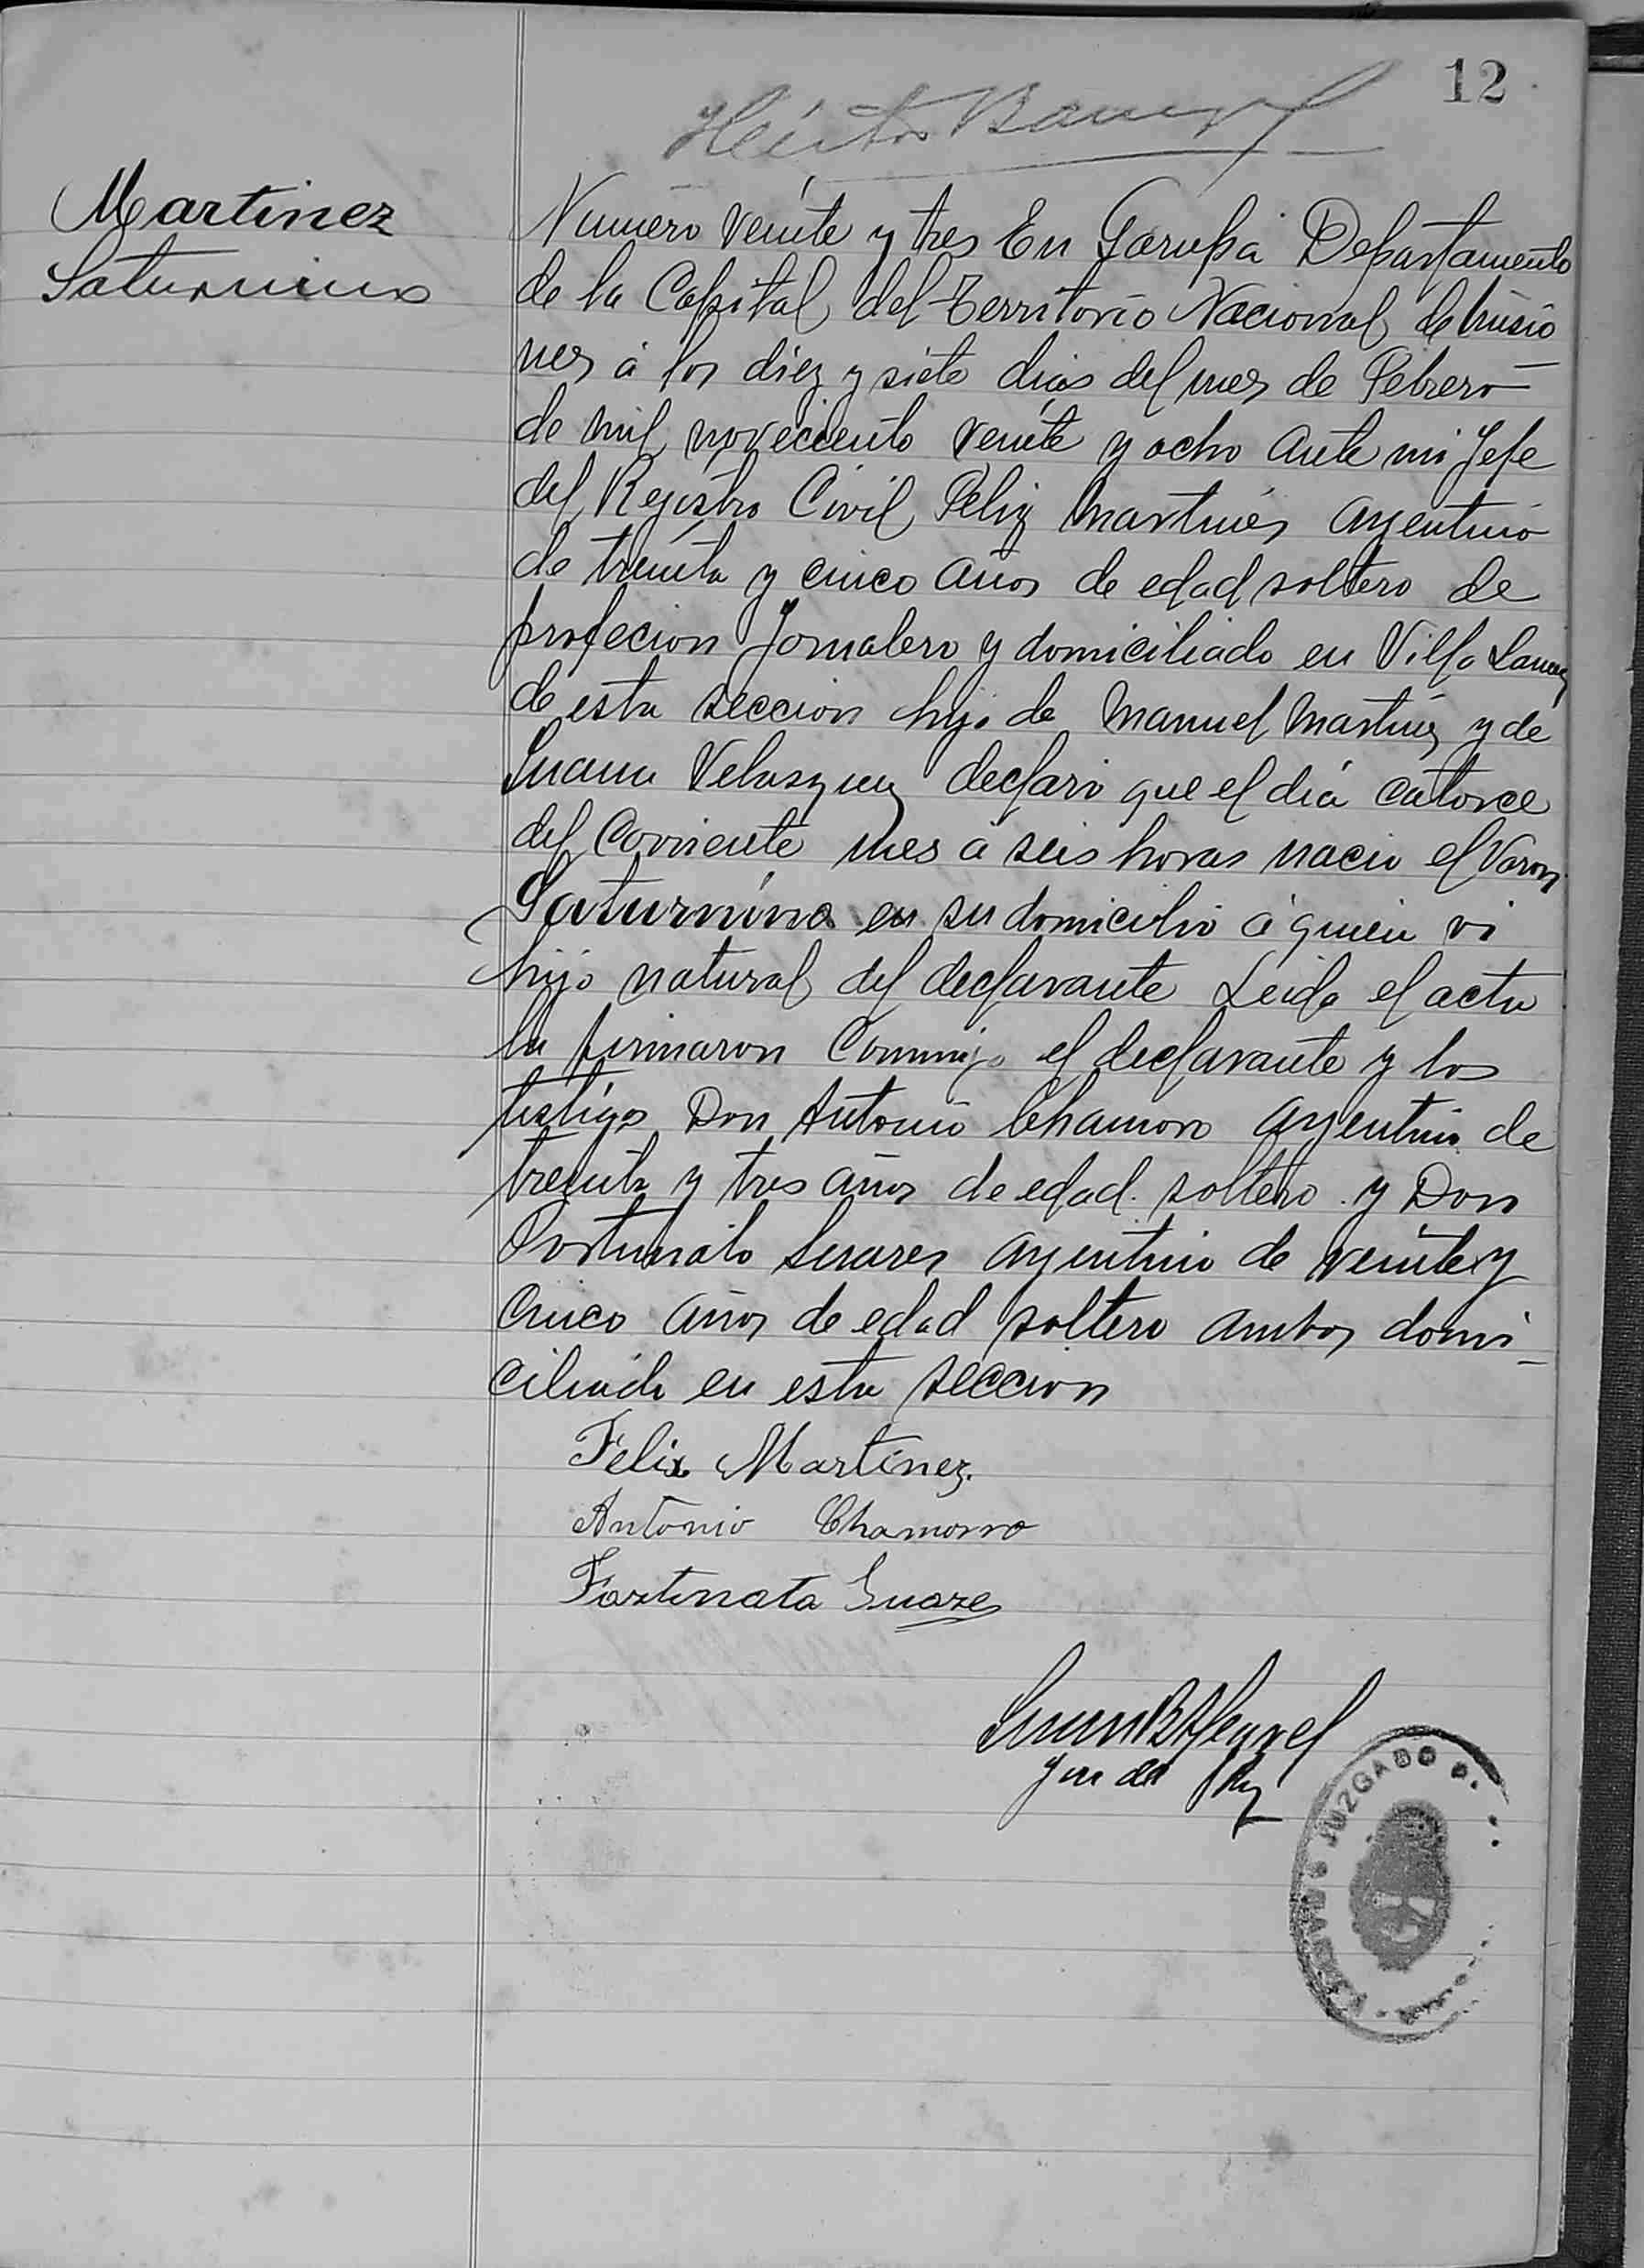 12
Héctor
Martinez
Saturnino
Numero veinte y tres En Garupa Departamento
de la Capital del Territorio Nacional de Misio
nes á los diez y siete dias del mes de Febrero
de mil noveciento veinte y ocho Ante mi Jefe
del Registro Civil Feliz Martines Argentino
de treinta y cinco años de edad soltero de
profecion Jornalero y domiciliado en Villa Lanuz
de esta seccion hijo de Manuel Martinez y de
Juana Velasquez declaro que el dia catorce
del Corriente mes a seis horas nacio el Varon
Saturnino en su domicilio á quien vi
hijo natural del declarante Leida el acta
la firmaron Conmigo el declarante y los
testigos Don Antonio Chamoro Argentino de
treinta y tres años de edad soltero y Don
Fortunato Suares Argentino de veinte y
Cinco años de edad soltero ambos domi-
ciliado en esta seccion
Felix Martinez.
Antonio Chamorro
Fortunata Suares
Juez de Paz
JUZGADO